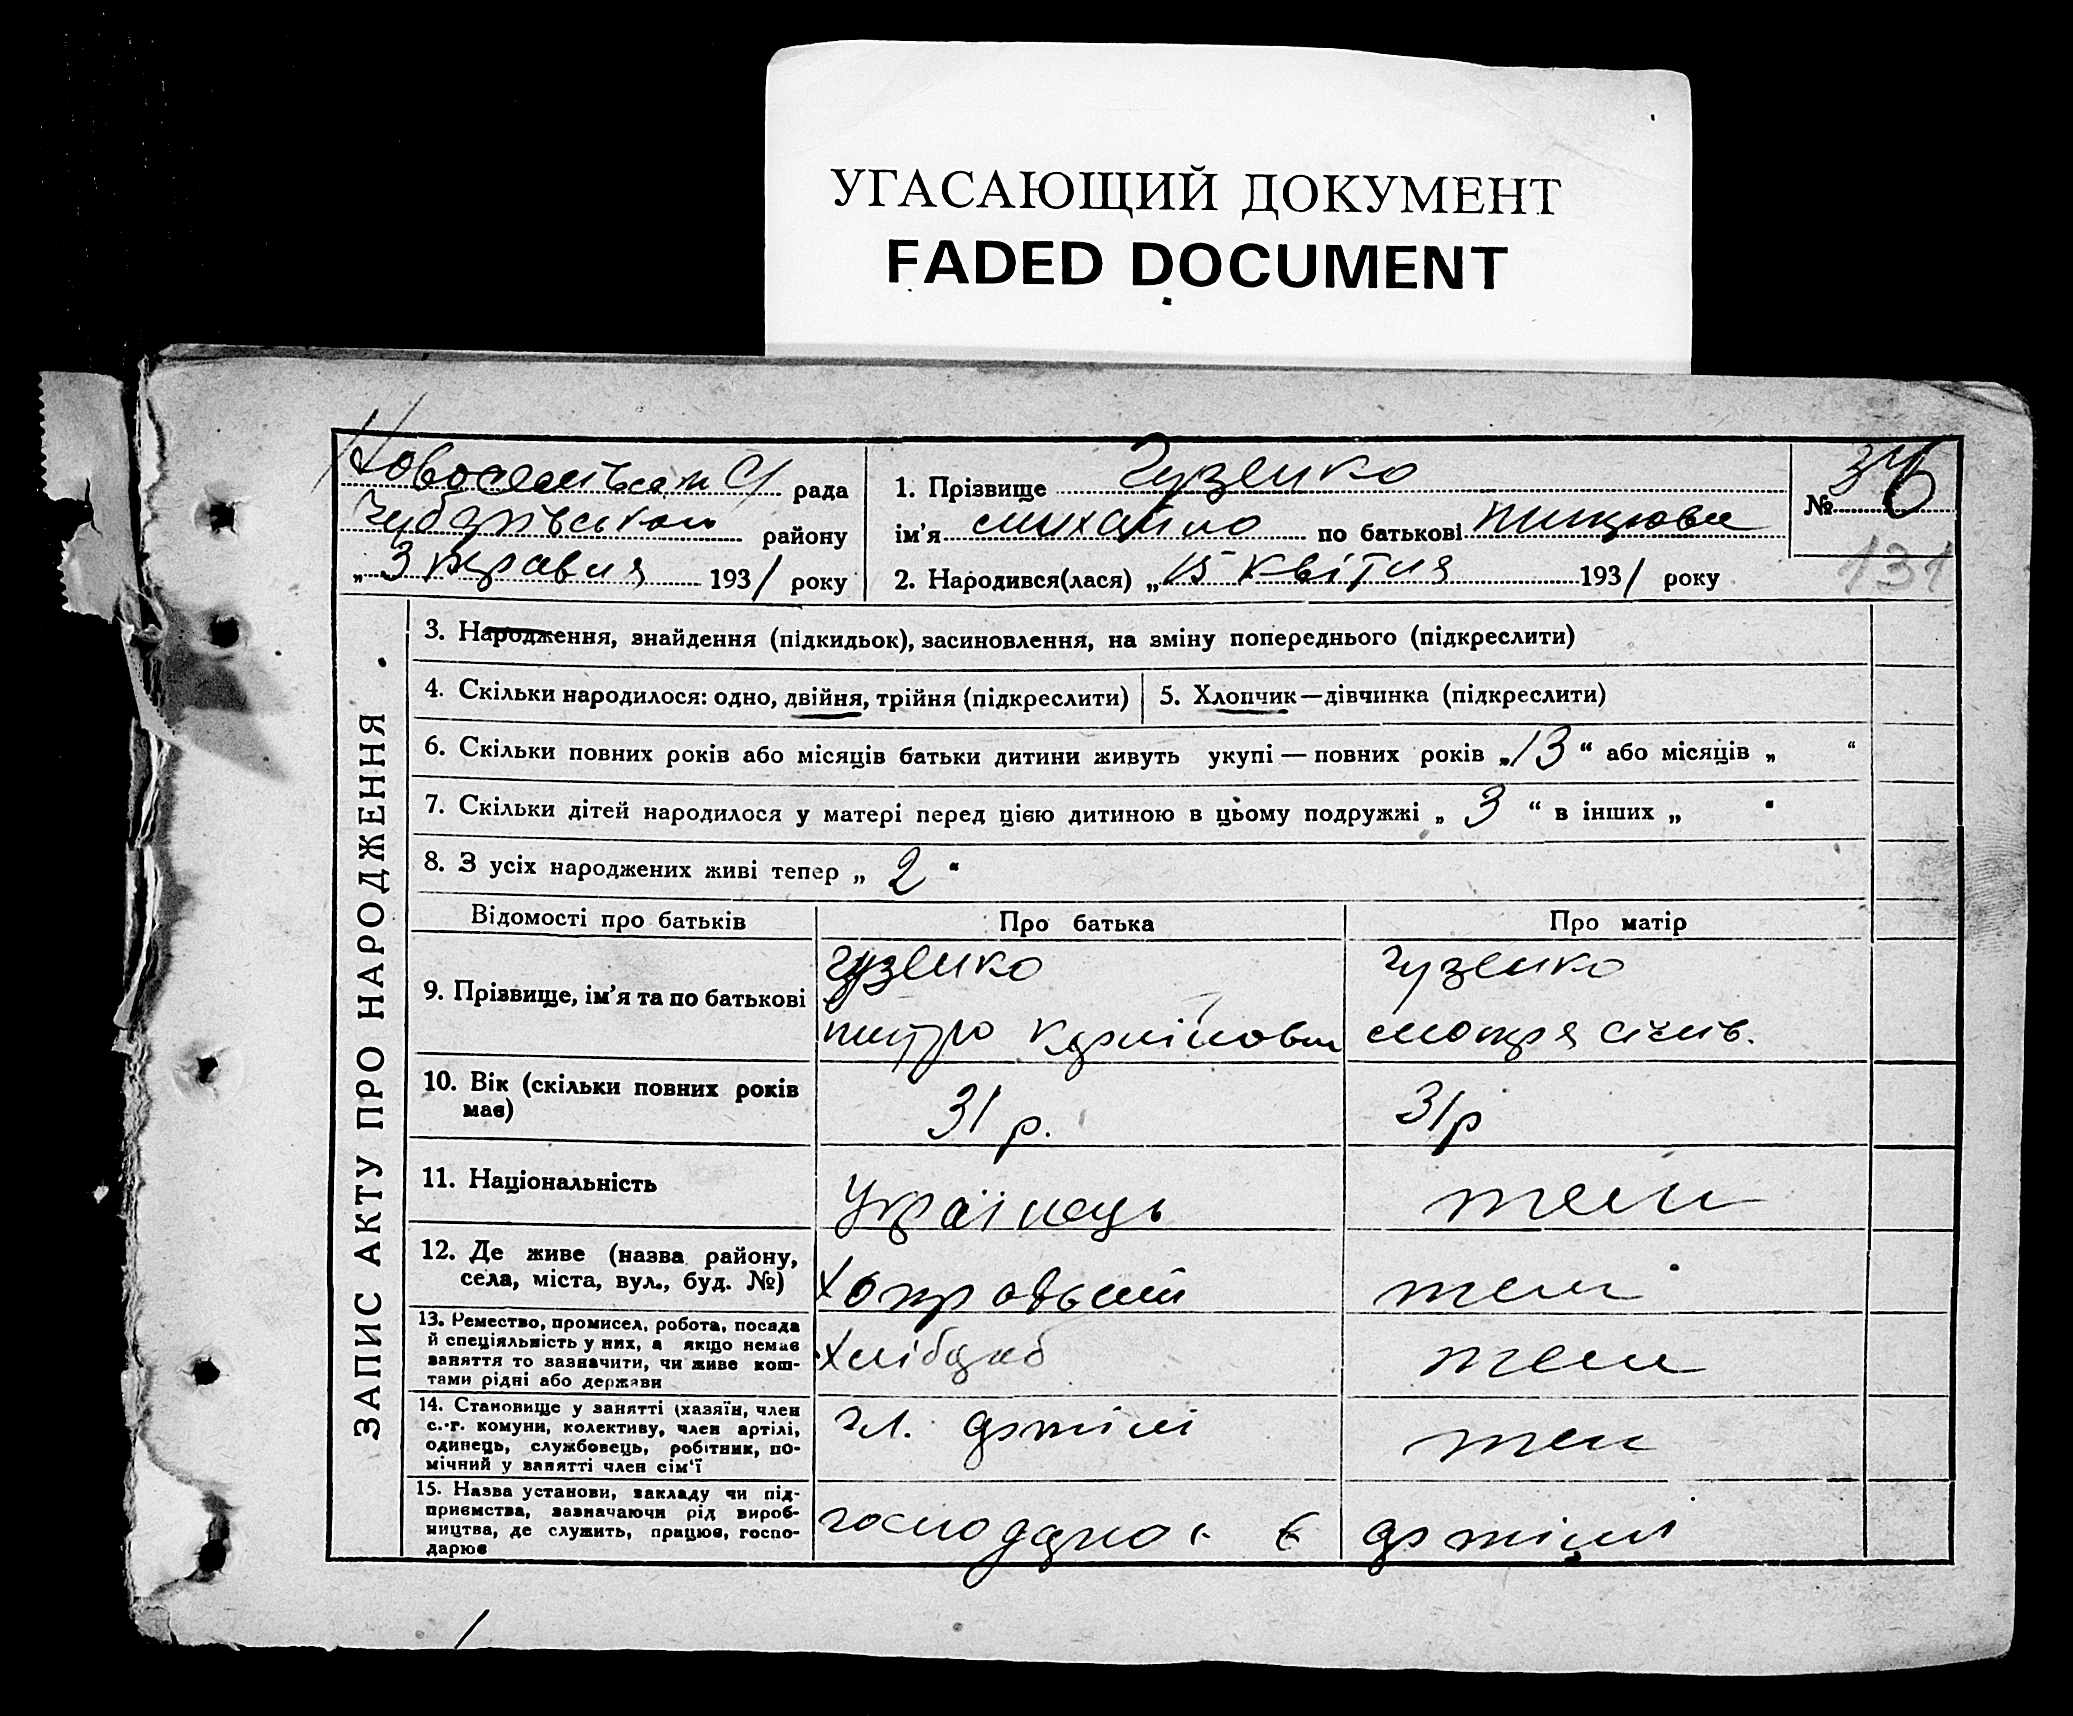 УГАСАЮЩИЙ ДОКУМЕНТ
FADED DOCUMENT
рада
району
„ 3 травня 1931 року
1. Прізвище Гузенко
ім'я Михайло по батькові
2. Народився(лася) „15 квітня 1931 року
№ 36
131
ЗАПИС АКТУ ПРО НАРОДЖЕННЯ
3. Народження, знайдення (підкидьок), засиновлення, на зміну попереднього (підкреслити)
4. Скільки народилося: одно, двійня, трійня (підкреслити)
5. Хлопчик—дівчинка (підкреслити)
6. Скільки повних років або місяців батьки дитини живуть укупі — повних років „13“ або місяців „ “
7. Скільки дітей народилося у матері перед цією дитиною в цьому подружжі „ 3 “ в інших „
8. З усіх народжених живі тепер „ 2 “
Відомості про батьків
Про батька
Про матір
9. Прізвище, ім'я та по батькові
Гузенко
Гузенко
10. Вік (скільки повних років
має)
31 р.
31 р
11. Національність
Українець
теж
12. Де живе (назва району,
села, міста, вул., буд. №)
теж
13. Ремество, промисел, робота, посада
й спеціяльність у них, а якщо немає
заняття то зазначити, чи живе кош-
тами рідні або держави
Хлібороб
теж
14. Становище у занятті (хазяїн, член
с.-г. комуни, колективу, член артілі,
одинець, службовець, робітник, по-
мічний у занятті член сім'ї
чл. артілі
теж
15. Назва установи, закладу чи під-
приємства, зазначаючи рід вироб-
ництва, де служить, працює, госпо-
дарює
артілі